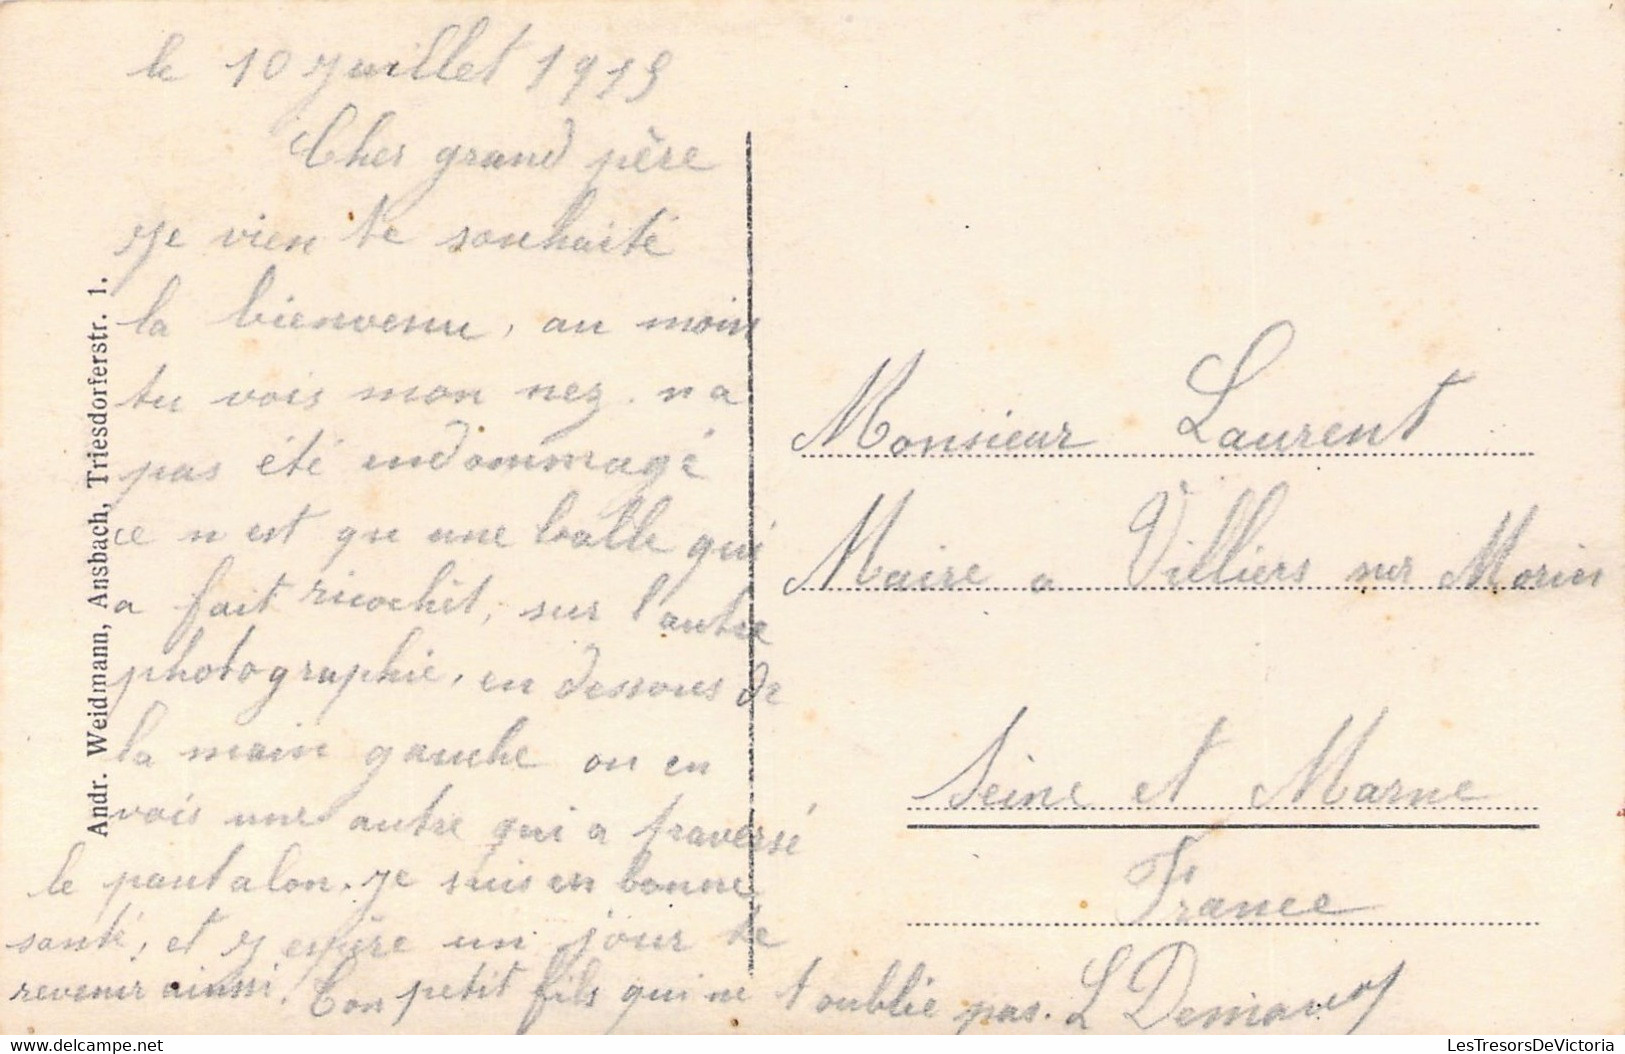 le 10 Juillet 1915
Cher grand père
Je vien te souhaité
la bienvenu, au moin
tu vois mon nez. n a
pas été endommagé
ce n est qu une balle qui
a fait ricochèt, sur l'autre
photographie, en dessous de
la main gauche on en
vois une autre qui a traversé
le pantalon. Je suis en bonne
santé, et J espère un jour te
revenir ainsi. Ton petit fils qui ne t oublie pas. L
Andr. Weidmann, Ansbach, Triesdorferstr. 1.
Monsieur Laurent
Maire a Villiers sur Morin
Seine et Marne
France
LesTresorsDeVictoria.com
LesTresorsDeVictoria